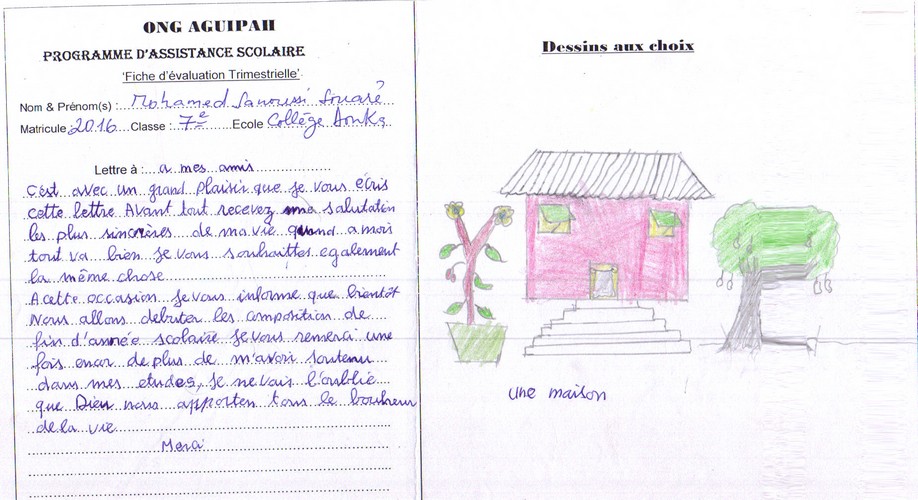 ONG AGUIPAH
PROGRAMME D'ASSISTANCE SCOLAIRE
'Fiche d'évaluation Trimestrielle'
Nom & Prénom(s) : Mohamed Sanoussi Souaré
Matricule : 2016 Classe : 7e Ecole Collège Donka
Lettre à : a mes amis
c'est avec un grand plaisir que je vous écris
cette lettre Avant tout recevez mes salutation
les plus sincrères de ma vie quand a moi
tout va bien je vous souhaittes egalement
la même chose
A cette occasion je vous informe que bientôt
Nous allons debuter les composition de
fin d'année scolaire je vous remerci une
fois encor de plus de m'avoir soutenu
dans mes etudes, je ne vais l'oublie
que Dieu nous apporten tous le bonheur
de la vie
Merci
Dessins aux choix
une maison